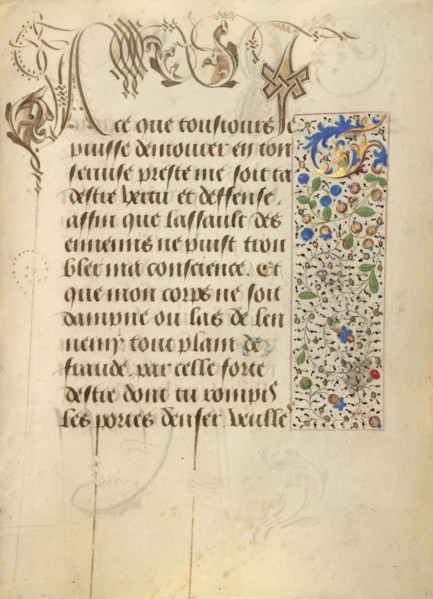 A ce que tousiours ie
puisse demourer en ton
seruise preste me soit ta
destre vertu et deffense.
affin que lassault des
ennemis ne puist trou
bler ma conscience. Et
que mon corps ne soit
dampne ou las de len
nemy tout plain de
fraude. par celle forte
destre dont tu rompis
les portes denfer. Veulle